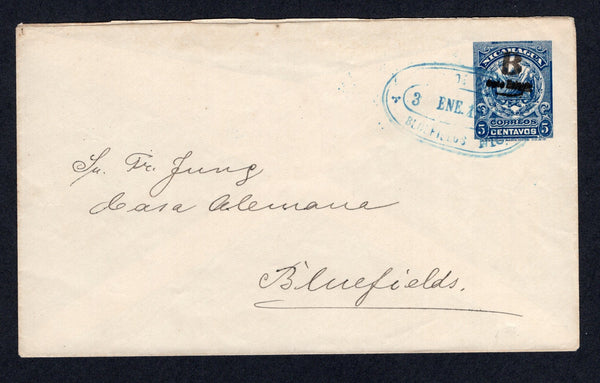 NICARAGUA
B
3 ENE.
CORREOS
5 CENTAVOS 5
BLUEFIELDS NIC.
Sn. Fr. Jung
Casa Alemana
Bluefields.